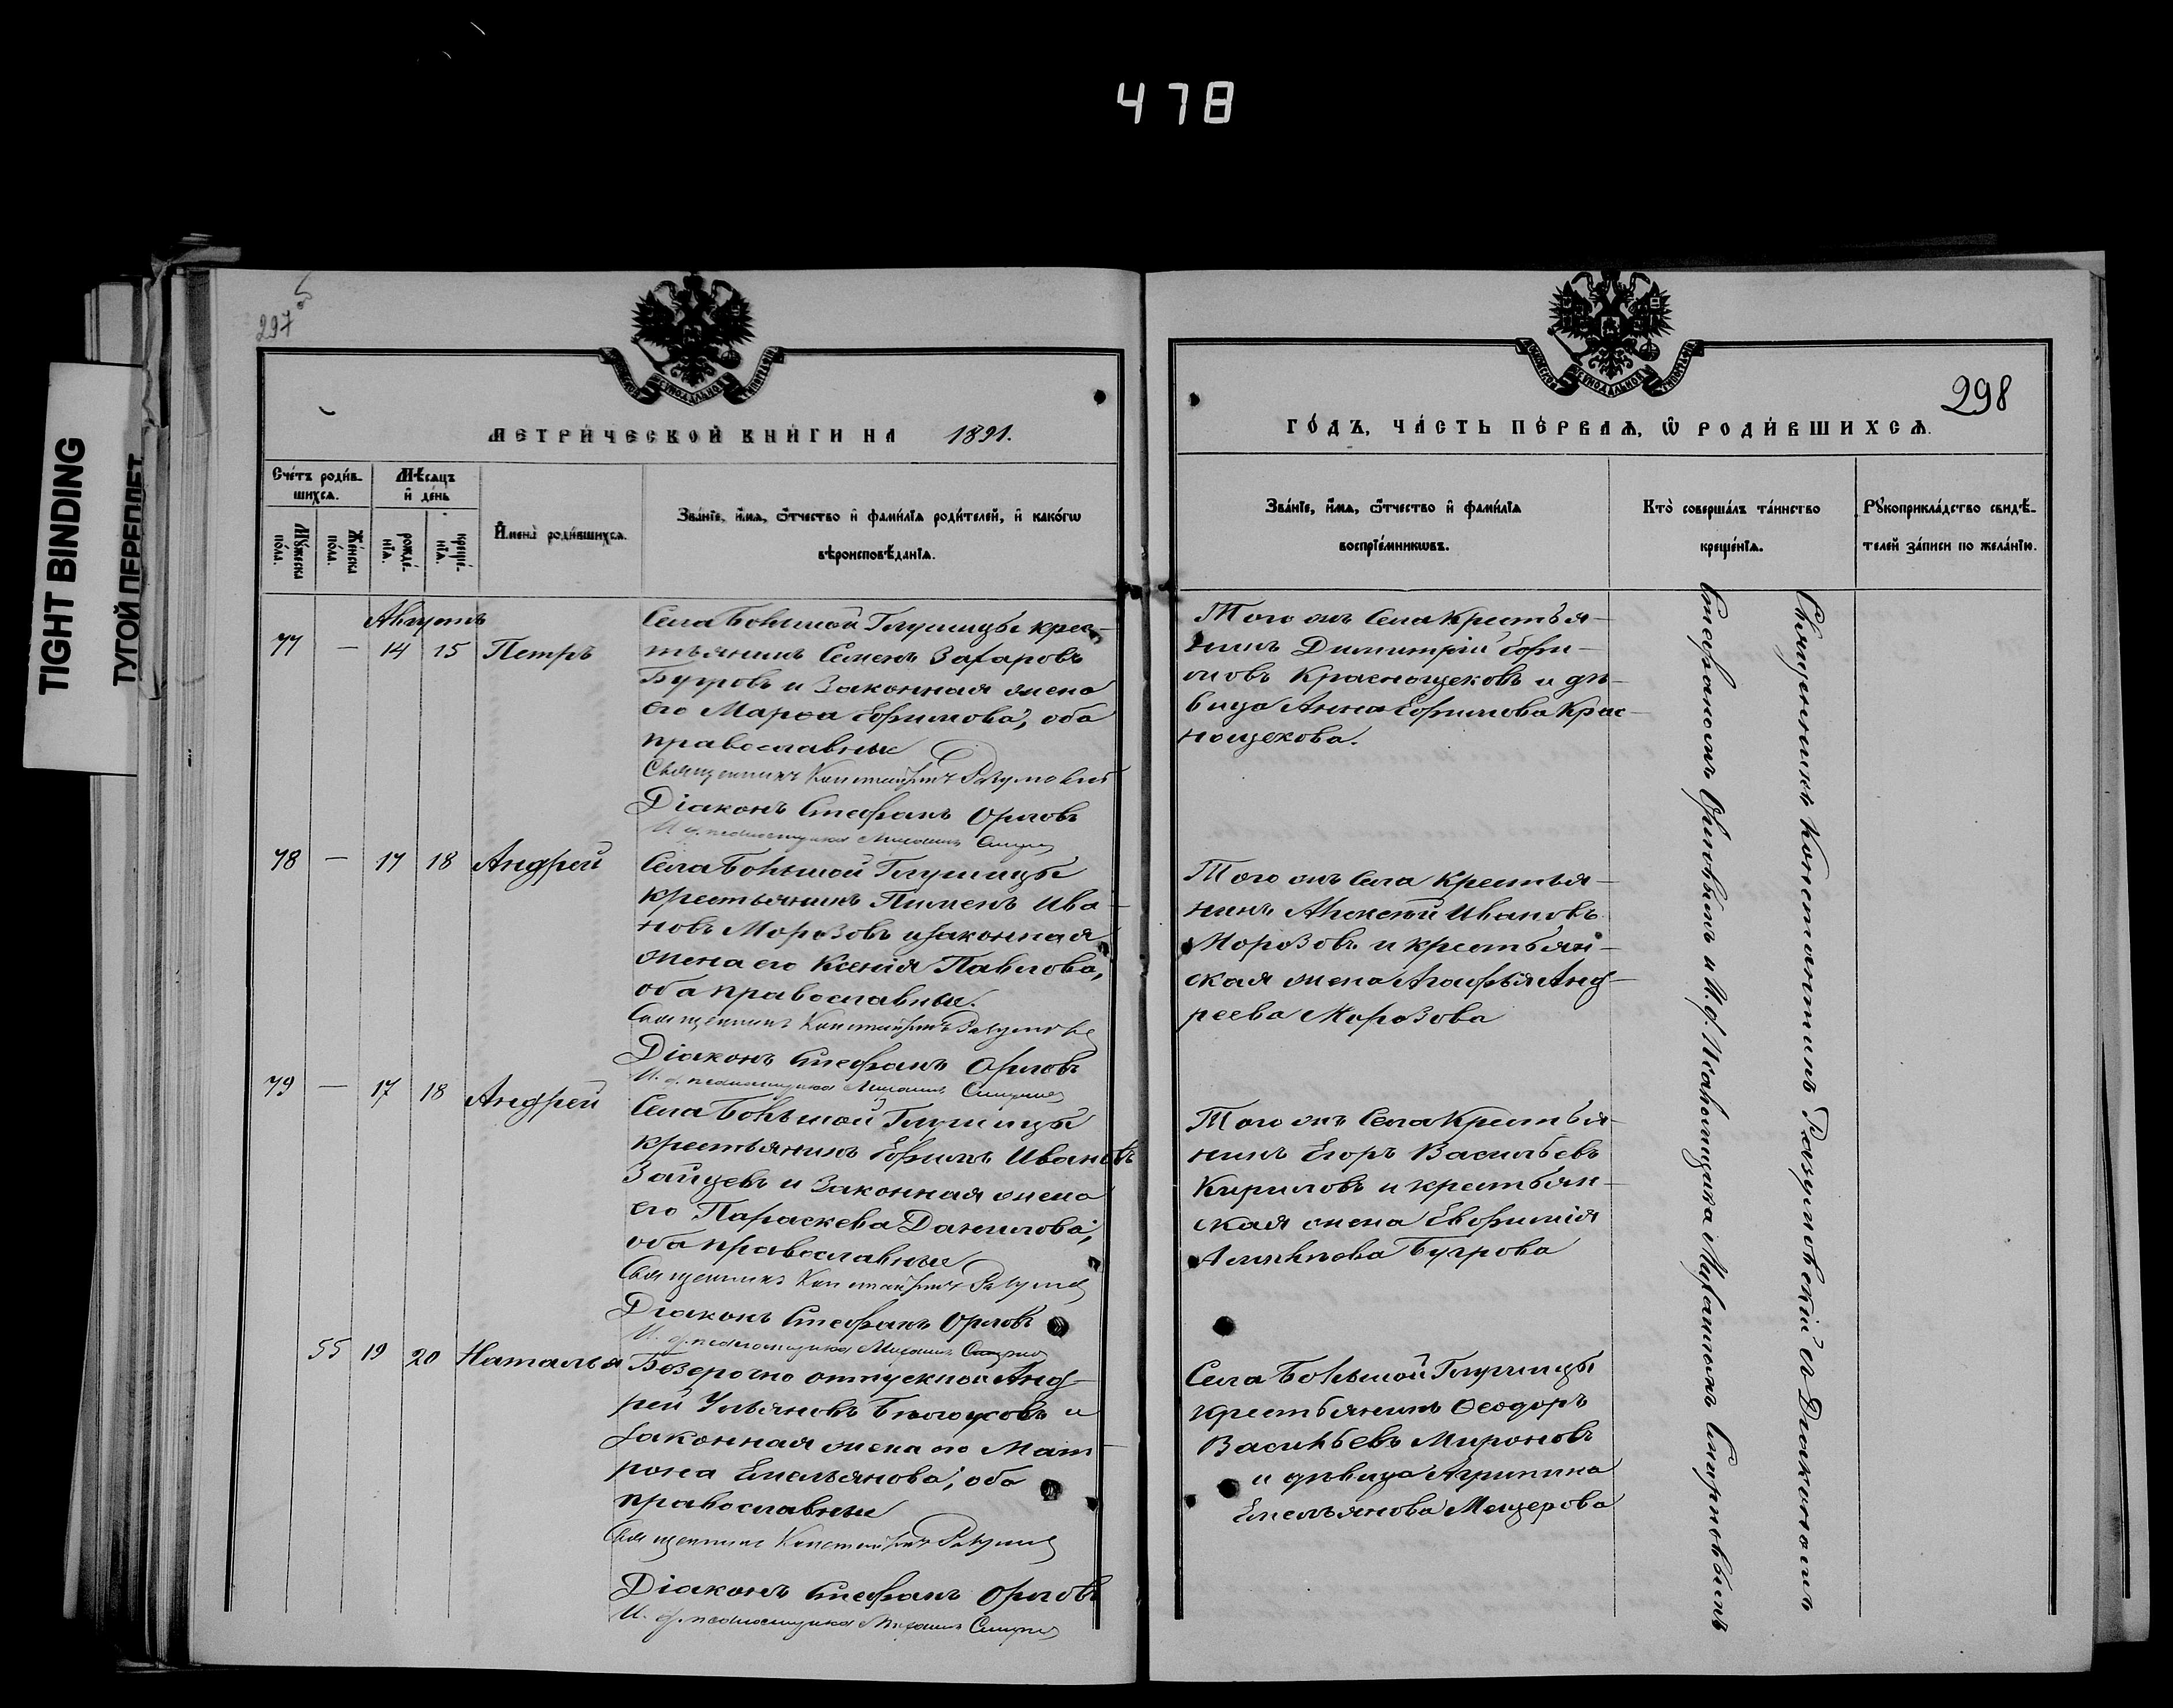 478
TIGHT BINDING
ТУГОЙ ПЕРЕПЛЕТ
297 об
МЕТРИ́ЧЕСКОЙ КНИ́ГИ НА 1891.
Сче́тъ роди́в-
шихсѧ.
Мѣ́сѧцъ
и҆ де́нь
Мꙋ́жеска
по́ла.
Же́нска
по́ла.
рожде́-
нїѧ.
креще́-
нїѧ.
И҆мена̀ роди́вшихсѧ.
Зва́нїе, и҆́мѧ, ѻ҆́тчество и҆ фами́лїѧ роди́телей, и҆ како́гѡ
вѣроисповѣ́данїѧ.
Августъ
77 — 14 15 Петръ
Села Большой Глушицы крес-
тьянинъ Семенъ Захаровъ
Бугровъ и законная жена
его Марѳа Ефимова, оба
православные
Священникъ Константинъ Разумовскій
Діаконъ Стефанъ Орловъ
И. д. псаломщика Михаилъ Смирнов
78 — 17 18 Андрей
Села Большой Глушицы
крестьянинъ Пименъ Ива-
новъ Морозовъ и законная
жена его Ксенія Павлова,
оба православные.
Священникъ Константинъ Разумовс
Діаконъ Стефанъ Орловъ
И. д. псаломщика Михаилъ Смирнов
79 — 17 18 Андрей
Села Большой Глушицы
крестьянинъ Ефимъ Ивановъ
Зайцевъ и законная жена
его Параскева Данилова,
оба православные
Священникъ Константинъ Разумов
Діаконъ Стефанъ Орловъ
И. д. псаломщика Михаилъ Смирнов
55 19 20 Наталья
Безсрочно отпускной Анд-
рей Ульяновъ Белоусовъ и
законная жена его Мат-
рона Емельянова, оба
православные
Священникъ Константинъ Разумов
Діаконъ Стефанъ Орловъ
И. д. псаломщика Михаилъ Смирнов
298
ГО́ДЪ, ЧА́СТЬ ПЕ́РВАѦ, Ѡ҆ РОДИ́ВШИХСѦ.
Зва́нїе, и҆́мѧ, ѻ҆́тчество и҆ фами́лїѧ
воспрїе́мникѡвъ.
Кто̀ соверша́лъ та́инство
креще́нїѧ.
Рꙋкоприкла́дство свидѣ́-
телей за́писи по жела́нїю.
Того жъ села крестья-
нинъ Димитрій Ефи-
мовъ Краснощековъ и дѣ-
вица Анна Ефимова Крас-
нощекова.
Того жъ села крестья-
нинъ Алексей Ивановъ
Морозовъ и крестьян-
ская жена Агафья Анд-
реева Морозова
Того жъ села крестья-
нинъ Егоръ Васильевъ
Кириловъ и крестьян-
ская жена Евфимія
Бугрова
Села Большой Глушицы
крестьянинъ Ѳеодоръ
Васильевъ Мироновъ
и дѣвица Агрипина
Емельянова Мещерова
Священникъ Константинъ Разумовскій съ Діакономъ
Стефаномъ Орловымъ и И. д. Псаломщика Михаиломъ Смирновымъ